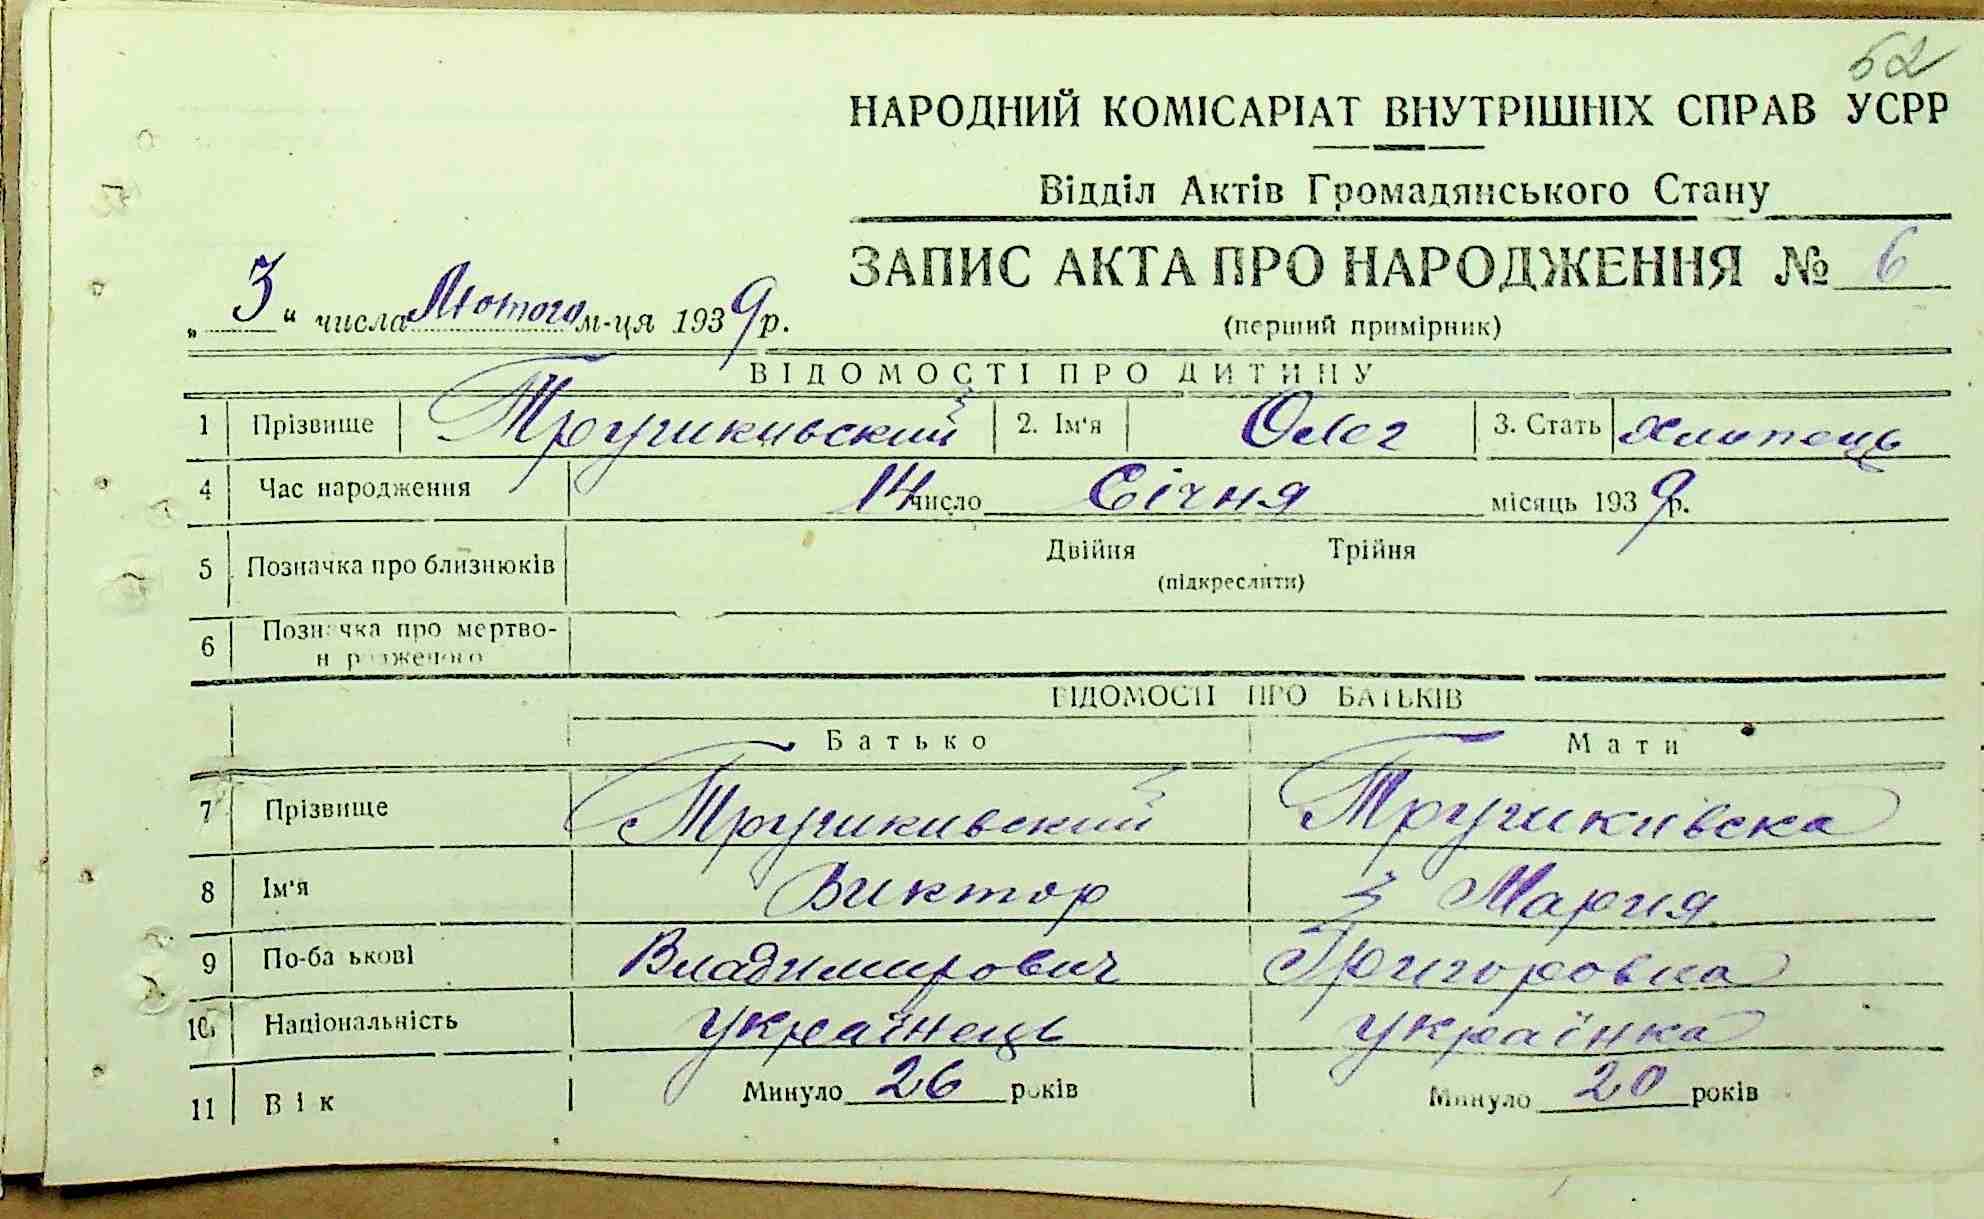 52
НАРОДНИЙ КОМІСАРІАТ ВНУТРІШНІХ СПРАВ УСРР
Відділ Актів Громадянського Стану
ЗАПИС АКТА ПРО НАРОДЖЕННЯ № 6
„3“ числа Лютого м-ця 1939 р.
(перший примірник)
ВІДОМОСТІ ПРО ДИТИНУ
1 Прізвище Трушкивский 2. Ім'я Олег 3. Стать хлипець
4 Час народження 14 число Січня місяць 1939 р.
5 Позначка про близнюків Двійня Трійня
(підкреслити)
6 Позначка про мертво-
н родженого
ВІДОМОСТІ ПРО БАТЬКІВ
Батько Мати
7 Прізвище Трушкивский Трушкивска
8 Ім'я Виктор Мария
9 По-ба ькові Владимирович Григоровна
10 Національність українець українка
11 Вік Минуло 26 років Минуло 20 років